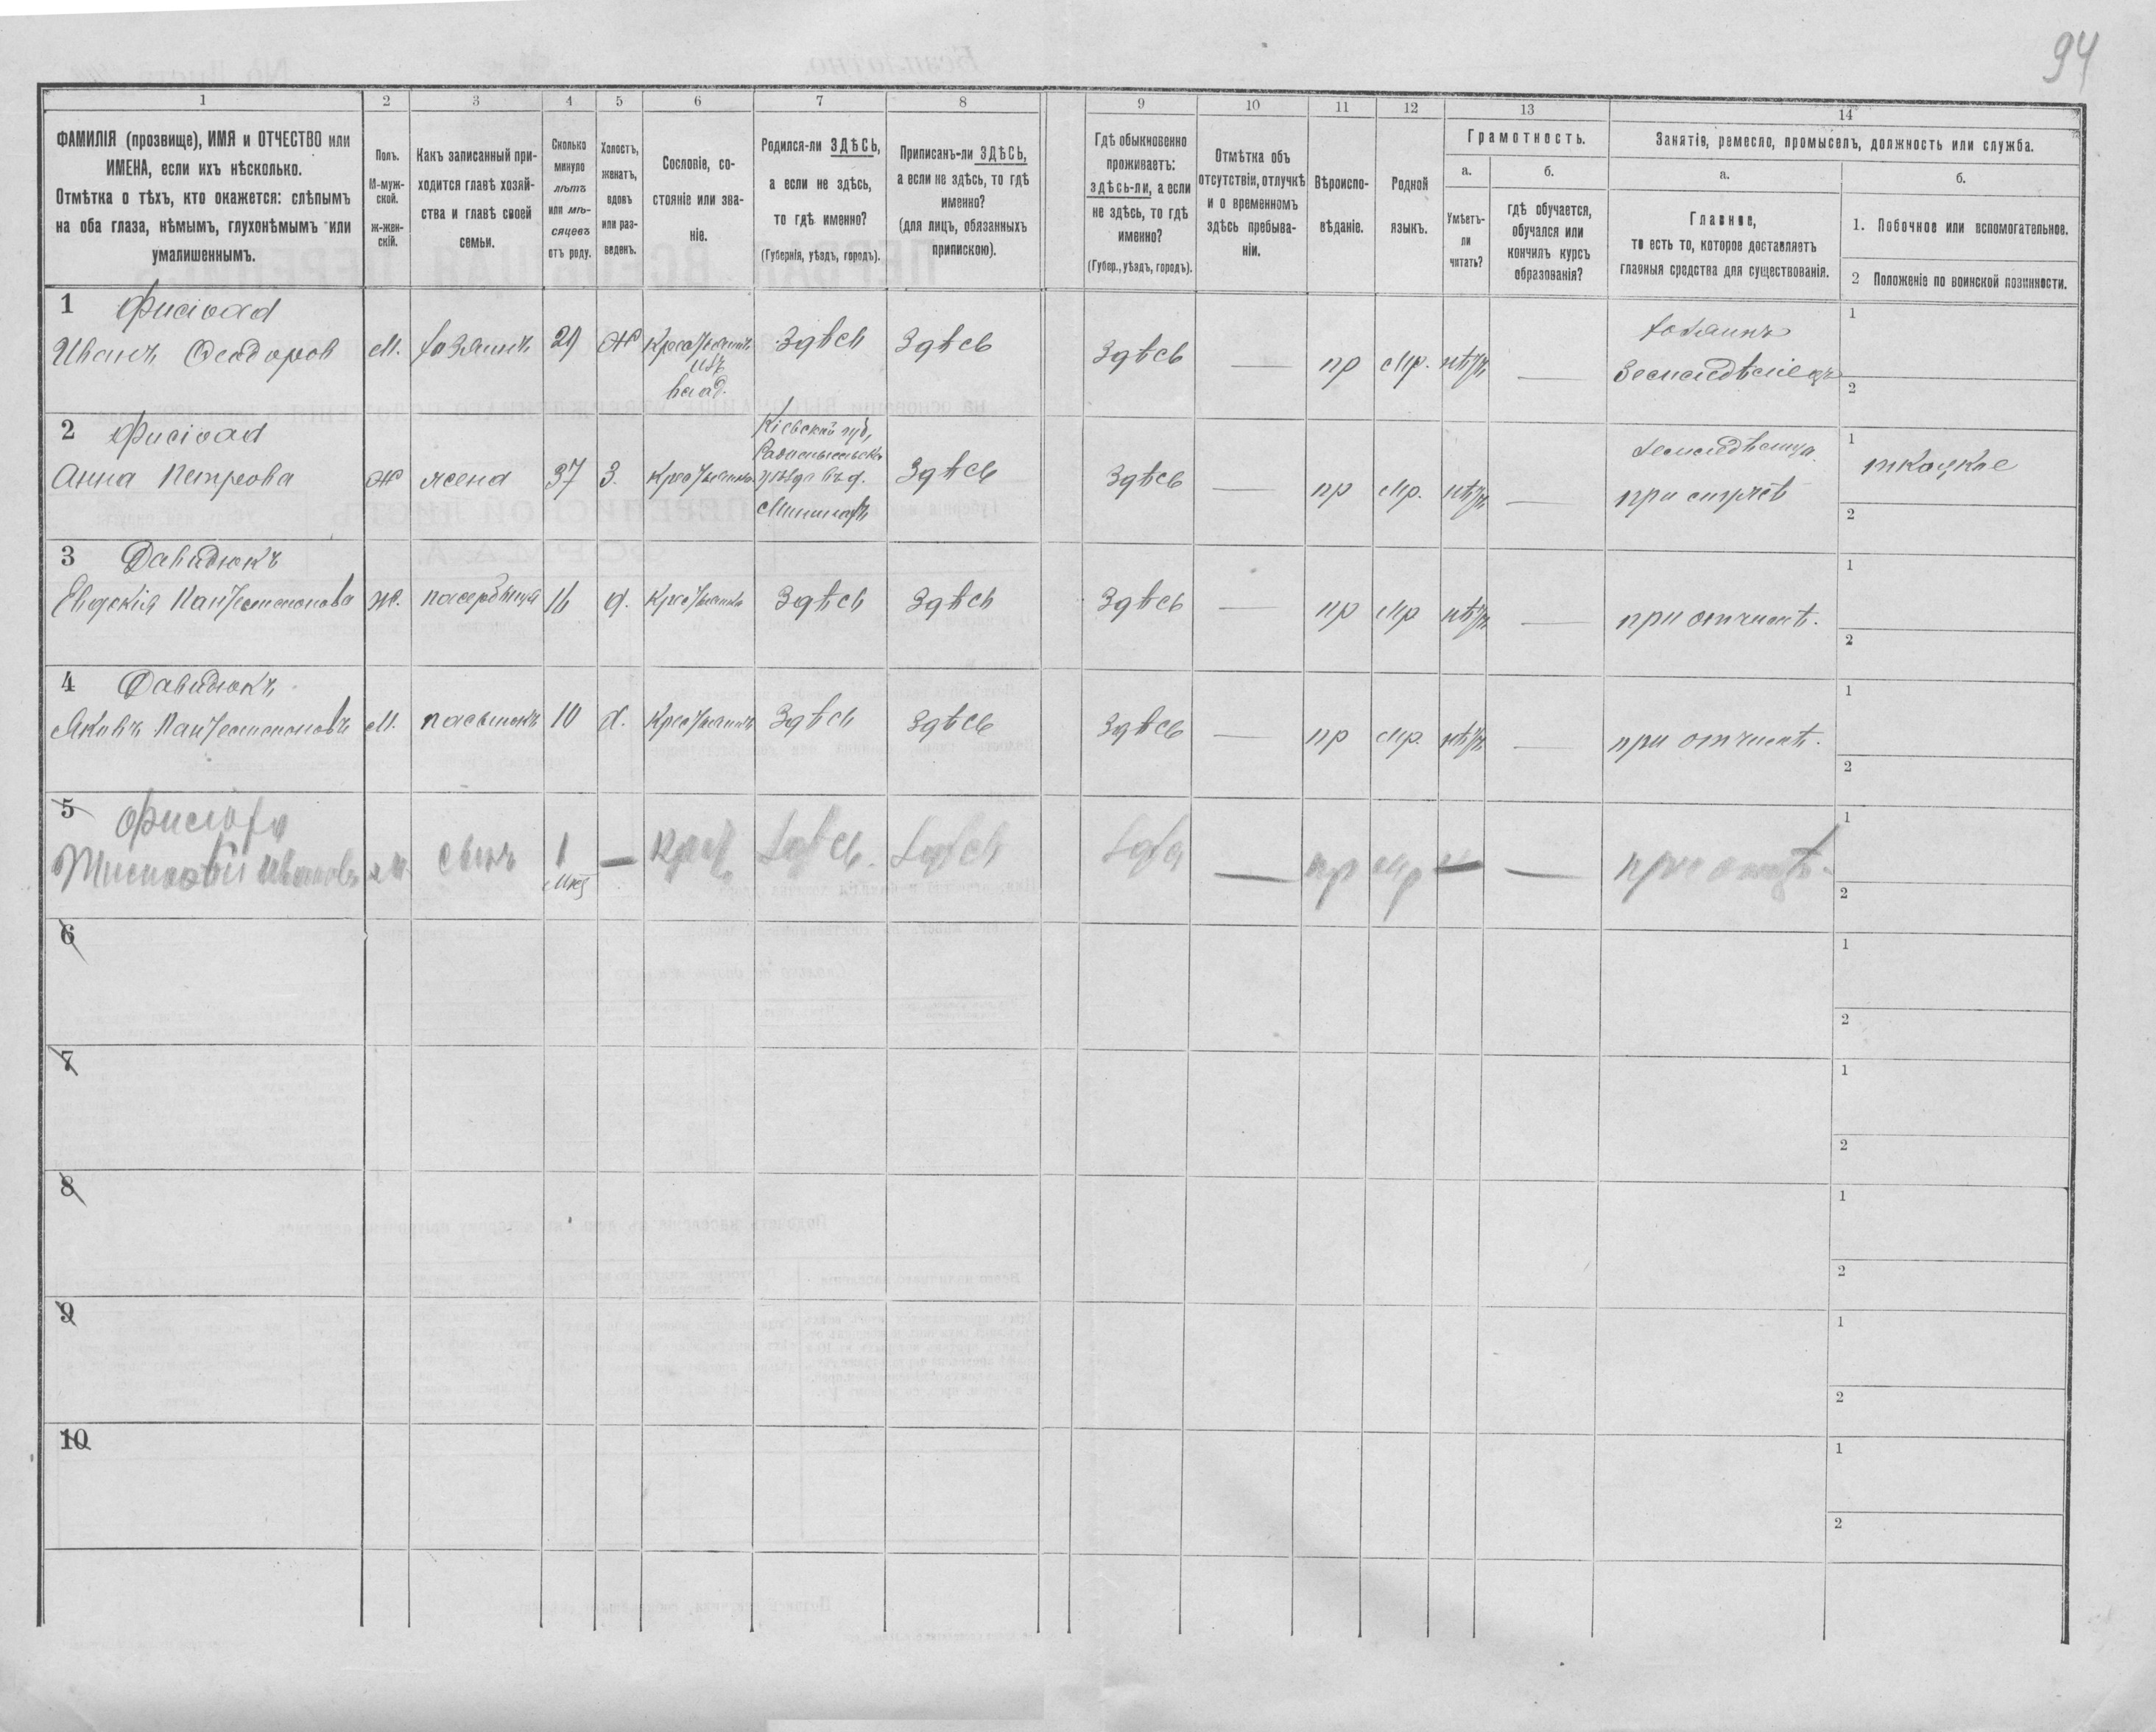 94
1 2 3 4 5 6 7 8 9 10 11 12 13 14
ФАМИЛІЯ (прозвище), ИМЯ и ОТЧЕСТВО или
ИМЕНА, если ихъ нѣсколько.
Отмѣтка о тѣхъ, кто окажется: слѣпымъ
на оба глаза, нѣмымъ, глухонѣмымъ или
умалишеннымъ.
Полъ.
М-муж-
ской.
ж-жен-
скій.
Какъ записанный при-
ходится главѣ хозяй-
ства и главѣ своей
семьи.
Сколько
минуло
лѣтъ
или мѣ-
сяцевъ
отъ роду.
Холостъ,
женатъ,
вдовъ
или раз-
веденъ.
Сословіе, со-
стояніе или зва-
ніе.
Родился-ли ЗДѢСЬ,
а если не здѣсь,
то гдѣ именно?
(Губернія, уѣздъ, городъ).
Приписанъ-ли ЗДѢСЬ,
а если не здѣсь, то гдѣ
именно?
(для лицъ, обязанныхъ
припискою).
Гдѣ обыкновенно
проживаетъ:
здѣсь-ли, а если
не здѣсь, то гдѣ
именно?
(Губер., уѣздъ, городъ).
Отмѣтка объ
отсутствіи, отлучкѣ
и о временномъ
здѣсь пребыва-
ніи.
Вѣроиспо-
вѣданіе.
Родной
языкъ.
Грамотность.
а.
Умѣетъ-
ли
читать?
б.
гдѣ обучается,
обучался или
кончилъ курсъ
образованія?
Занятія, ремесло, промыселъ, должность или служба.
а.
Главное,
то есть то, которое доставляетъ
главныя средства для существованія.
б.
1. Побочное или вспомогательное.
2 Положеніе по воинской повинности.
1
Иванъ Феодоров М. хозяинъ 29 Ж Крестьянинъ Здѣсь Здѣсь Здѣсь — пр Мр. нѣтъ — хозяинъ
изъ
влад.
Земледѣлецъ
1
2
2
Анна Петрова Ж жена 37 З. Крестьянка Здѣсь Здѣсь — пр Мр. нѣтъ —
Кіевской губ,
при мужѣ
1 ткацкое
2
3 Давидюкъ
Евдокія Пантелимонова Ж. падчерица 16 д. Крестьянка Здѣсь Здѣсь Здѣсь — пр Мр нѣтъ — при отчимѣ.
1
2
4 Давидюкъ
Яковъ Пантелимоновъ М. пасынокъ 10 х. Крестьянинъ Здѣсь Здѣсь Здѣсь — пр Мр. нѣтъ — при отчимѣ.
1
2
5
Тимофѣй Ивановъ М. сынъ 1 — Крест. Здѣсь. Здѣсь Здѣсь — пр Мр — — при отцѣ.
мѣс
1
2
6
1
2
7
1
2
8
1
2
9
1
2
10
1
2